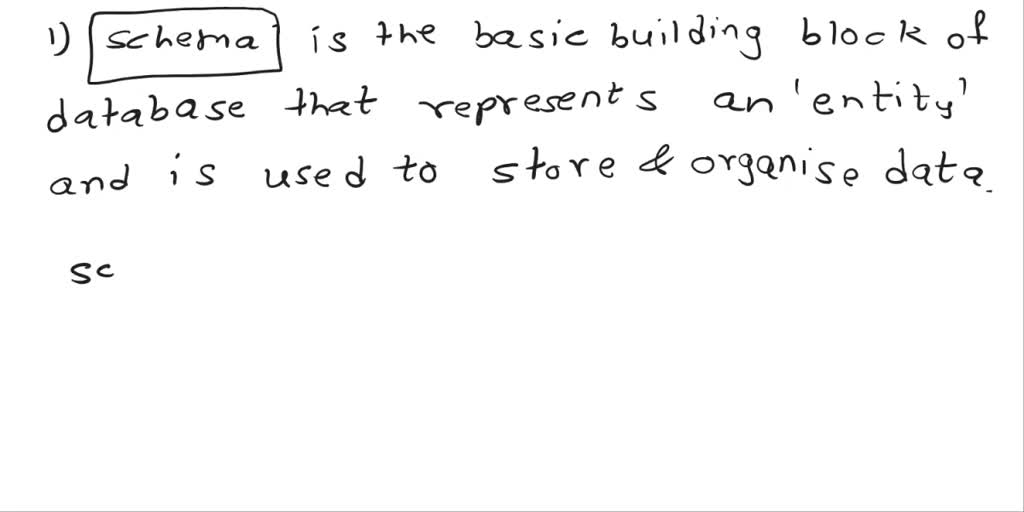 1) schema is the basic building block of
database that represents an 'entity'
and is used to store & organise data.
sc